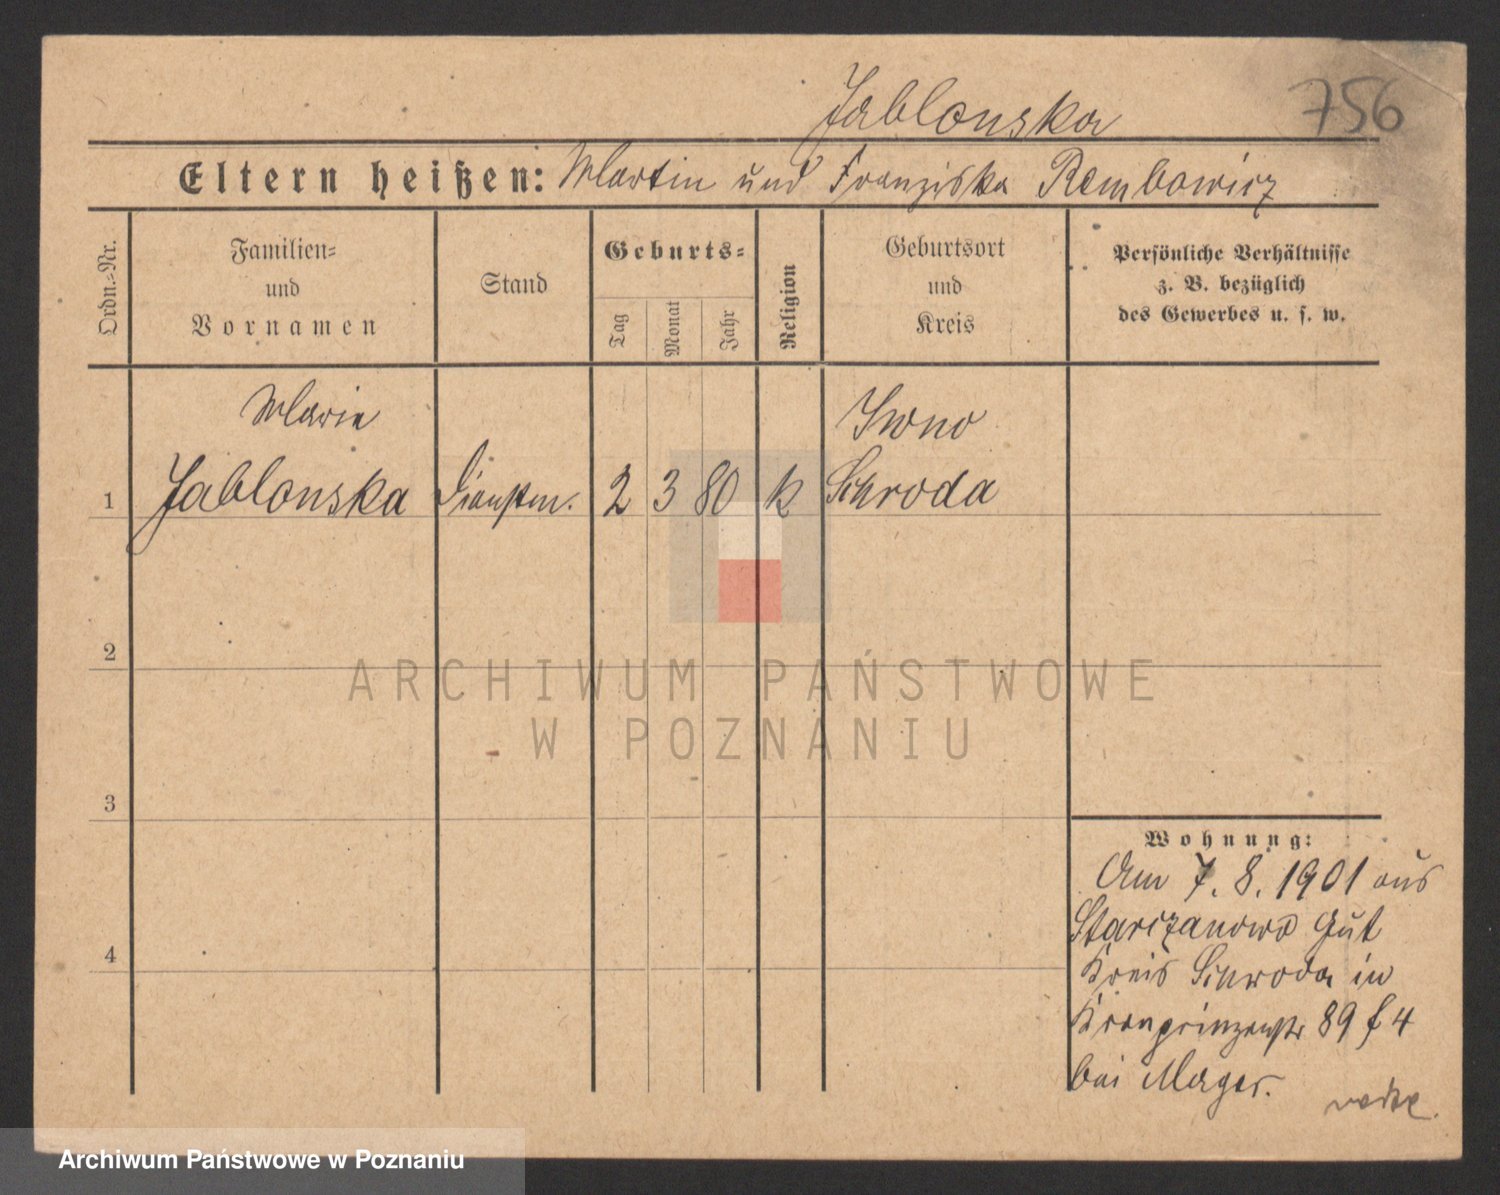 Jablonska 756
Eltern heißen: Martin und Franziska Rembowicz
Ordn.=Nr.
Familien=
und
Vornamen
Stand
Geburts=
Tag
Monat
Jahr
Religion
Geburtsort
und
Kreis
Persönliche Verhältnisse
z. B. bezüglich
des Gewerbes u. s. w.
Marie
Iwno
1 Jablonska Dienstm. 2 3 80 k Schroda
2
ARCHIWUM PAŃSTWOWE
W POZNANIU
3
Wohnung:
Am 7. 8. 1901 aus
Starczanowo Gut
4
Kreis Schroda in
Kronprinzenstr 89 f 4
bei Mager.
Archiwum Państwowe w Poznaniu